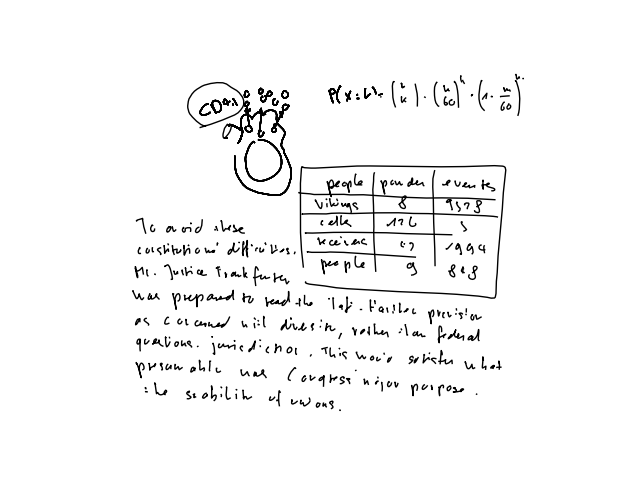 P(X=k)=
people pounder events
Vikings 8
cells 126 5
receiver 1994
people 9 848
To avoid these
constitutional difficulties,
Mr. Justice Frankfurter
was prepared to read the Taft-Hartley provision
as concerned with diversity, rather than federal
questions, jurisdiction. This would satisfy what
presumably was Congress' major purpose
the stability of unions.